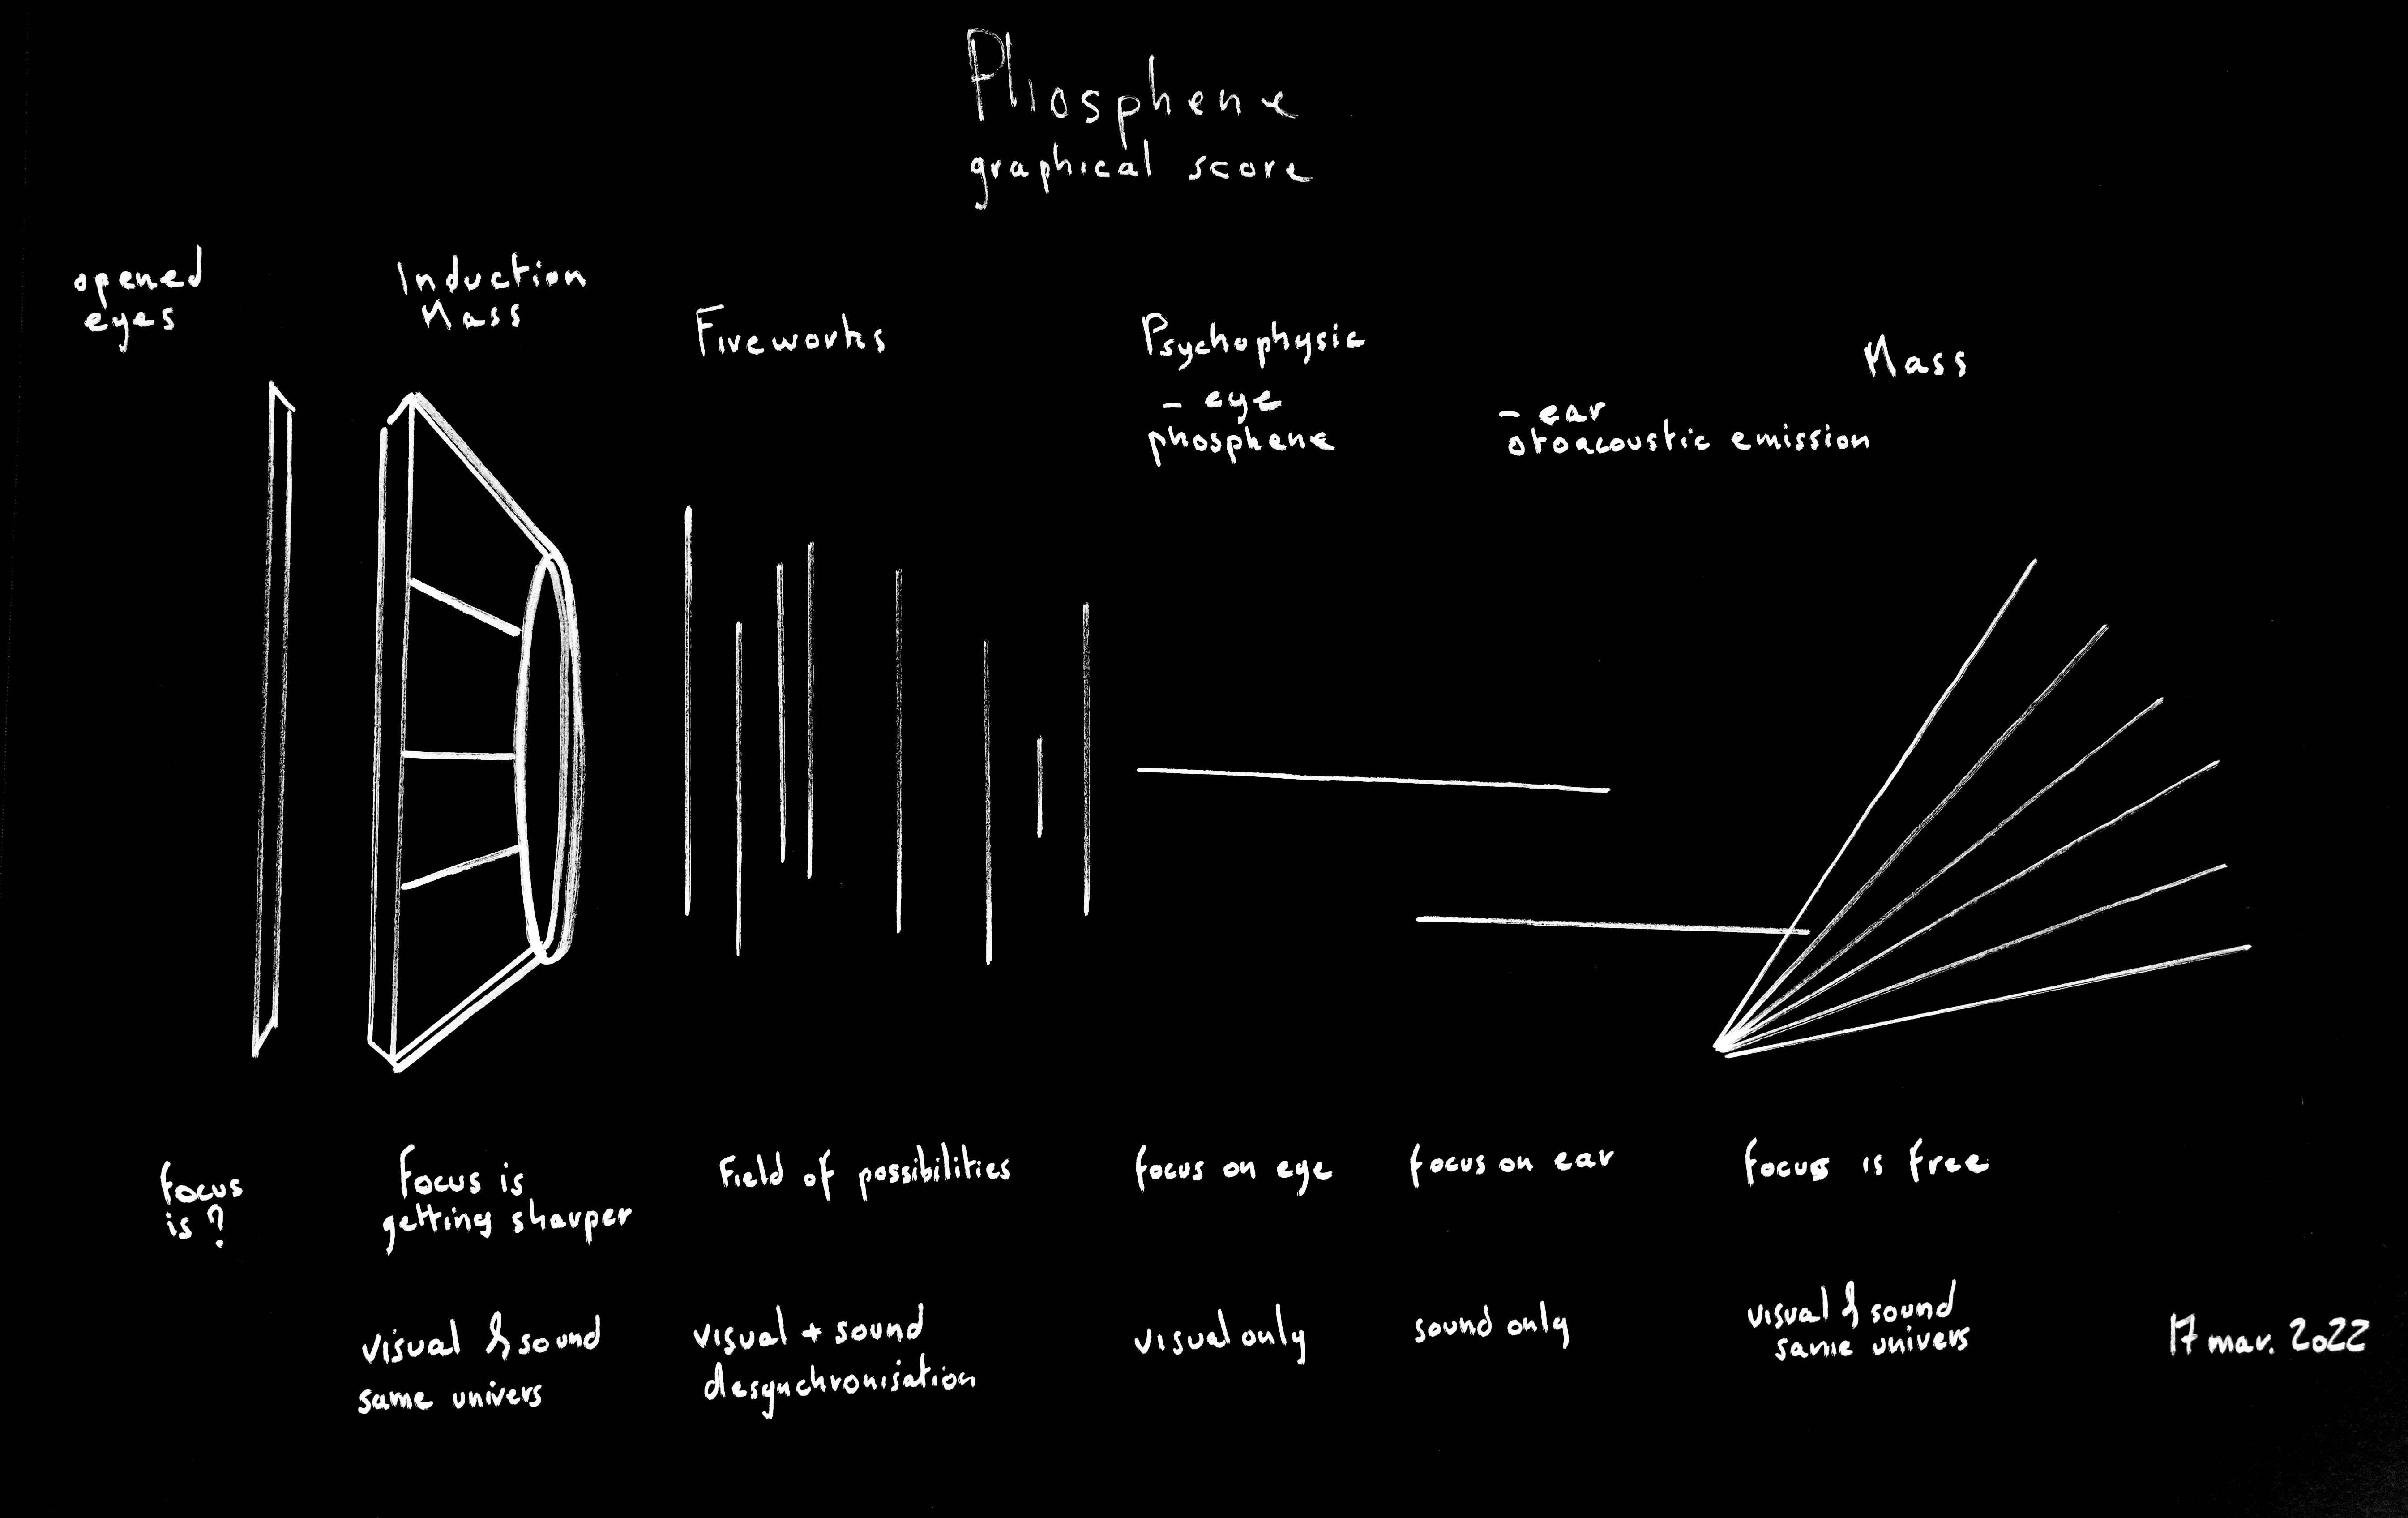 Phosphene
graphical score
opened
eyes
Induction
Mass
Fireworks
Psychophysic
- eye
phosphene
- ear
otoacoustic emission
Mass
focus
is ?
Focus is
getting sharper
Field of possibilities
focus on eye
focus on ear
focus is free
visual & sound
same univers
visual + sound
desynchronisation
visual only
sound only
visual & sound
same univers
17 mar. 2022